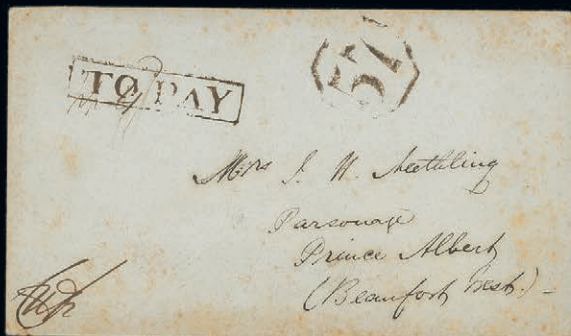 TO PAY
57
Miss J. H. Neethling
Parsonage
Prince Albert
(Beaufort West.) -